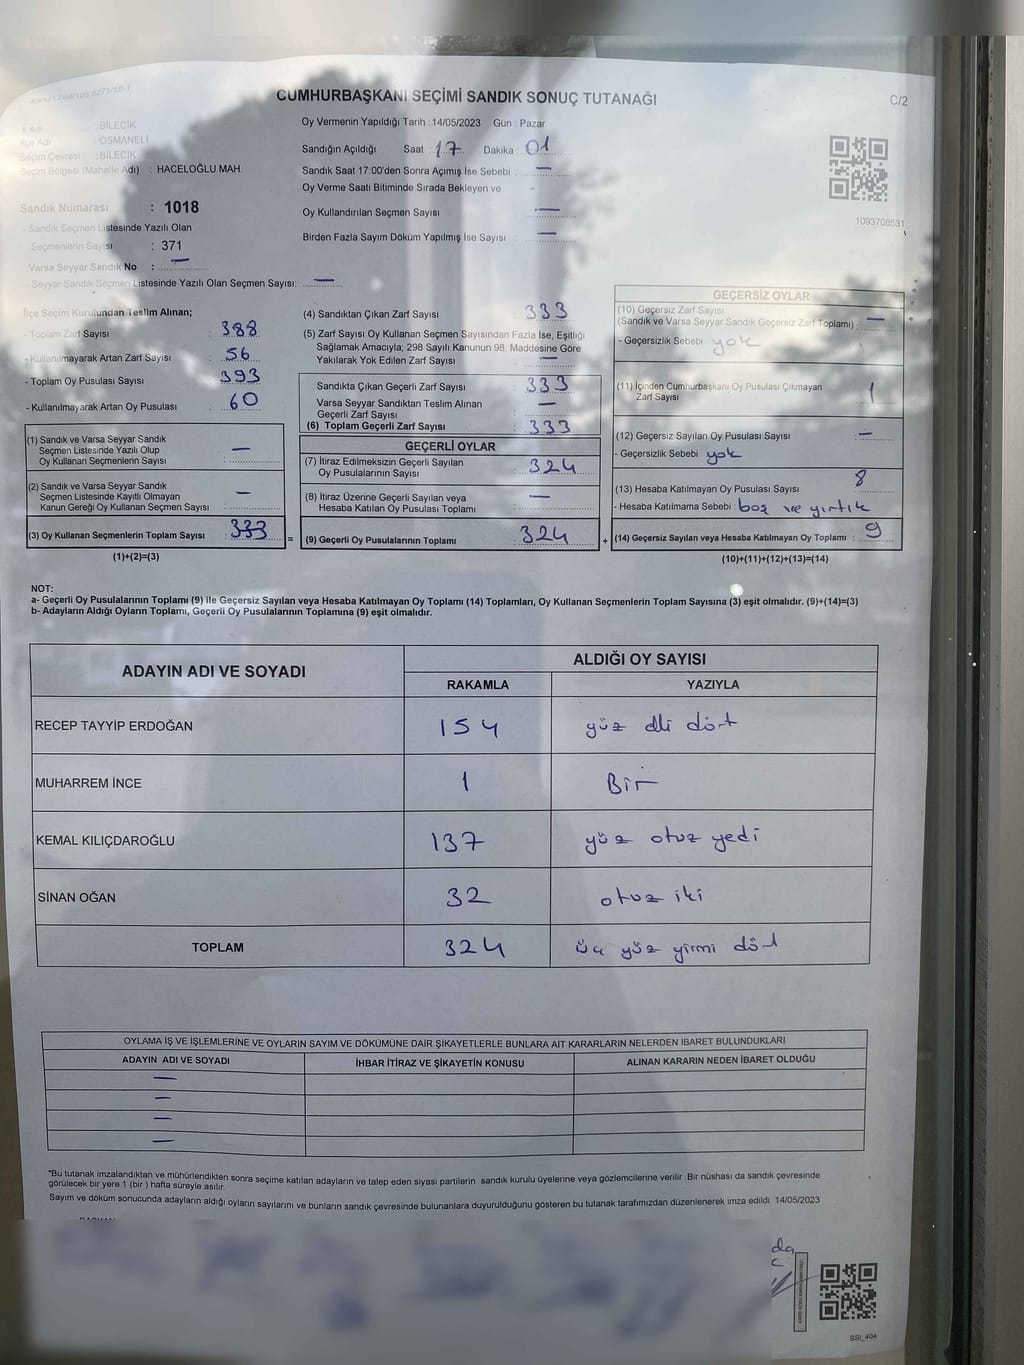 CUMHURBAŞKANI SEÇİMİ SANDIK SONUÇ TUTANAĞI
C/2
İl Adı : BİLECİK
İlçe Adı : OSMANELİ
Seçim Çevresi : BİLECİK
Seçim Bölgesi (Mahalle Adı) : HACELOĞLU MAH.
Sandık Numarası : 1018
- Sandık Seçmen Listesinde Yazılı Olan
Seçmenlerin Sayısı : 371
Varsa Seyyar Sandık No : —
- Seyyar Sandık Seçmen Listesinde Yazılı Olan Seçmen Sayısı: —
Oy Vermenin Yapıldığı Tarih : 14/05/2023 Gün : Pazar
Sandığın Açıldığı Saat : 17 Dakika : 01
Sandık Saat 17:00'den Sonra Açımış İse Sebebi : —
Oy Verme Saati Bitiminde Sırada Bekleyen ve -
Oy Kullandırılan Seçmen Sayısı —
Birden Fazla Sayım Döküm Yapılmış İse Sayısı : —
1093708531
İlçe Seçim Kurulundan Teslim Alınan;
- Toplam Zarf Sayısı : 388
- Kullanılmayarak Artan Zarf Sayısı : 56
- Toplam Oy Pusulası Sayısı : 393
- Kullanılmayarak Artan Oy Pusulası : 60
(1) Sandık ve Varsa Seyyar Sandık
Seçmen Listesinde Yazılı Olup
Oy Kullanan Seçmenlerin Sayısı : —
(2) Sandık ve Varsa Seyyar Sandık
Seçmen Listesinde Kayıtlı Olmayan
Kanun Gereği Oy Kullanan Seçmen Sayısı : —
(3) Oy Kullanan Seçmenlerin Toplam Sayısı : 333
(1)+(2)=(3)
(4) Sandıktan Çıkan Zarf Sayısı : 333
(5) Zarf Sayısı Oy Kullanan Seçmen Sayısından Fazla İse, Eşitliği
Sağlamak Amacıyla; 298 Sayılı Kanunun 98. Maddesine Göre
Yakılarak Yok Edilen Zarf Sayısı : —
Sandıkta Çıkan Geçerli Zarf Sayısı : 333
Varsa Seyyar Sandıktan Teslim Alınan
Geçerli Zarf Sayısı : —
(6) Toplam Geçerli Zarf Sayısı : 333
GEÇERLİ OYLAR
(7) İtiraz Edilmeksizin Geçerli Sayılan
Oy Pusulalarının Sayısı : 324
(8) İtiraz Üzerine Geçerli Sayılan veya
Hesaba Katılan Oy Pusulası Toplamı : —
= (9) Geçerli Oy Pusulalarının Toplamı : 324
GEÇERSİZ OYLAR
(10) Geçersiz Zarf Sayısı
(Sandık ve Varsa Seyyar Sandık Geçersiz Zarf Toplamı) : —
- Geçersizlik Sebebi : yok
(11) İçinden Cumhurbaşkanı Oy Pusulası Çıkmayan
Zarf Sayısı : 1
(12) Geçersiz Sayılan Oy Pusulası Sayısı : —
- Geçersizlik Sebebi : yok
(13) Hesaba Katılmayan Oy Pusulası Sayısı : 8
- Hesaba Katılmama Sebebi : boş ve yırtık
+ (14) Geçersiz Sayılan veya Hesaba Katılmayan Oy Toplamı : 9
(10)+(11)+(12)+(13)=(14)
NOT:
a- Geçerli Oy Pusulalarının Toplamı (9) ile Geçersiz Sayılan veya Hesaba Katılmayan Oy Toplamı (14) Toplamları, Oy Kullanan Seçmenlerin Toplam Sayısına (3) eşit olmalıdır. (9)+(14)=(3)
b- Adayların Aldığı Oyların Toplamı, Geçerli Oy Pusulalarının Toplamına (9) eşit olmalıdır.
ADAYIN ADI VE SOYADI ALDIĞI OY SAYISI
RAKAMLA YAZIYLA
RECEP TAYYİP ERDOĞAN 154 yüz elli dört
MUHARREM İNCE 1 Bir
KEMAL KILIÇDAROĞLU 137 yüz otuz yedi
SİNAN OĞAN 32 otuz iki
TOPLAM 324 üç yüz yirmi dört
OYLAMA İŞ VE İŞLEMLERİNE VE OYLARIN SAYIM VE DÖKÜMÜNE DAİR ŞİKAYETLERLE BUNLARA AİT KARARLARIN NELERDEN İBARET BULUNDUKLARI
ADAYIN ADI VE SOYADI İHBAR İTİRAZ VE ŞİKAYETİN KONUSU ALINAN KARARIN NEDEN İBARET OLDUĞU
—
—
—
—
*Bu tutanak imzalandıktan ve mühürlendikten sonra seçime katılan adayların ve talep eden siyasi partilerin sandık kurulu üyelerine veya gözlemcilerine verilir. Bir nüshası da sandık çevresinde
görülecek bir yere 1 (bir ) hafta süreyle asılır.
Sayım ve döküm sonucunda adayların aldığı oyların sayılarını ve bunların sandık çevresinde bulunanlara duyurulduğunu gösteren bu tutanak tarafımızdan düzenlenerek imza edildi. 14/05/2023
SSI_404